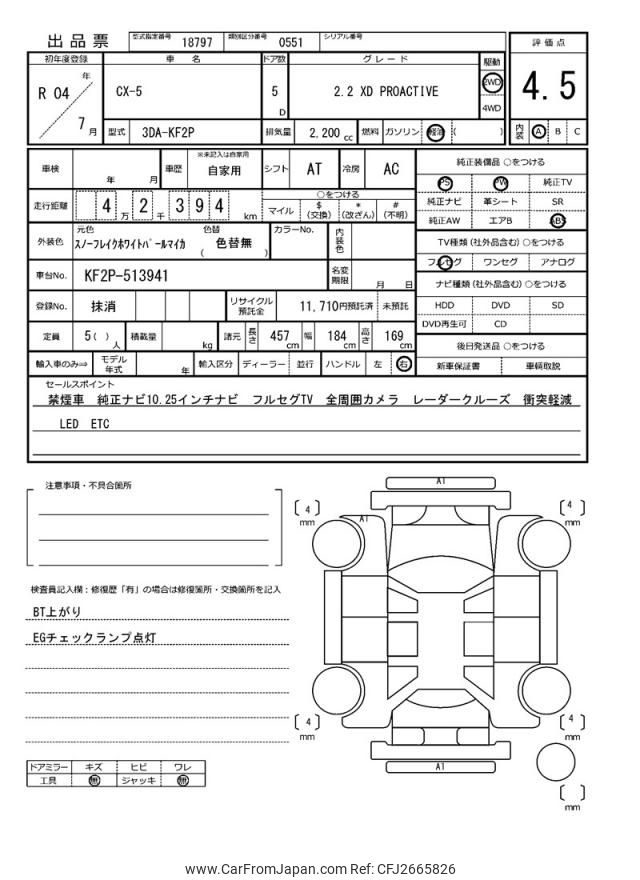 出品票 型式指定番号 18797 類別区分番号 0551 シリアル番号
初年度登録 車 名 ドア数 グレード 駆動 評価点
R 04 年 7 月 CX-5 5 D 2.2 XD PROACTIVE 2WD 4WD 4.5
型式 3DA-KF2P 排気量 2,200 cc 燃料 ガソリン 軽油 ( ) 内装 A B C
車検 年 月 車歴 ※未記入は自家用 自家用 シフト AT 冷房 AC
走行距離 4 万 2 千 3 9 4 km ○をつける マイル $ (交換) * (改ざん) # (不明)
外装色 元色 スノーフレイクホワイトパールマイカ 色替 ( 色替無 ) カラーNo. 内装色
車台No. KF2P-513941 名変期限 月 日
登録No. 抹消 リサイクル預託金 11,710円預託済 未預託
定員 5( ) 人 積載量 kg 諸元 長さ 457 cm 幅 184 cm 高さ 169 cm
輸入車のみ⇒ モデル年式 年 輸入区分 ディーラー 並行 ハンドル 左 右
純正装備品 ○をつける
PS PW 純正TV
純正ナビ 革シート SR
純正AW エアB ABS
TV種類 (社外品含む) ○をつける
フルセグ ワンセグ アナログ
ナビ種類 (社外品含む) ○をつける
HDD DVD SD
DVD再生可 CD
後日発送品 ○をつける
新車保証書 車輌取説
セールスポイント
禁煙車 純正ナビ10.25インチナビ フルセグTV 全周囲カメラ レーダークルーズ 衝突軽減
LED ETC
注意事項・不具合箇所
検査員記入欄:修復歴「有」の場合は修復箇所・交換箇所を記入
BT上がり
EGチェックランプ点灯
ドアミラー キズ ヒビ ワレ
工具 無 ジャッキ 無
A1
[ 4 ] mm
[ 4 ] mm
A1
[ 4 ] mm
[ 4 ] mm
A1
[ ] mm
www.CarFromJapan.com Ref: CFJ2665826